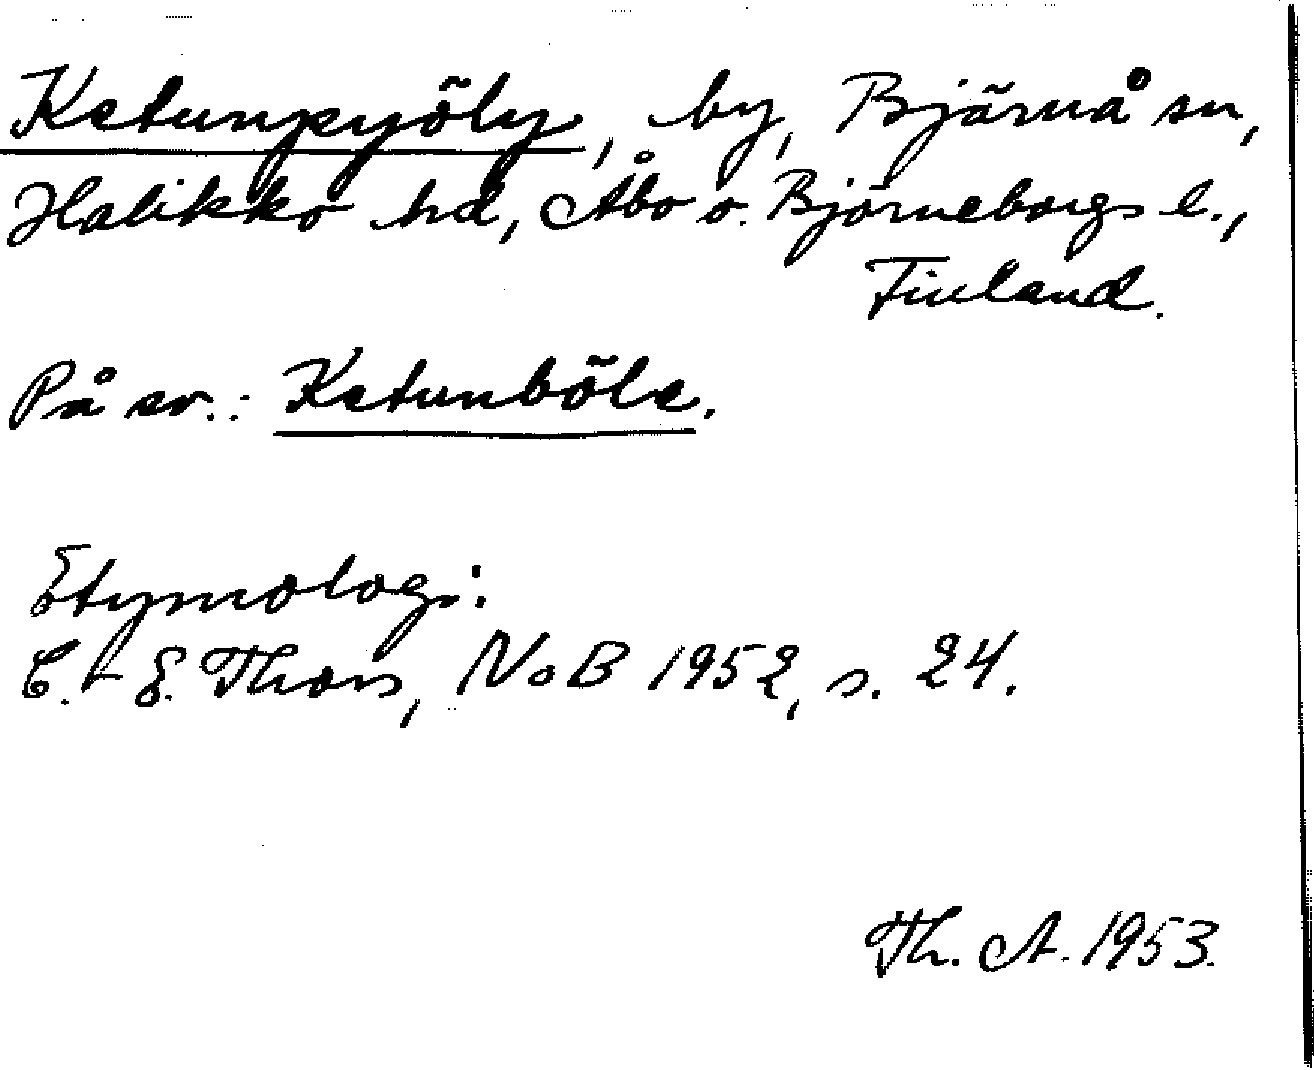 Ketunpyöly, by, Bjärnå sn,
Halikko hd, Åbo o. Björneborgs l.,
Finland.
På sv.: Ketunböle.
Etymologi:
C.-E. Thors, NoB 1952, s. 24.
Th. A. 1953.